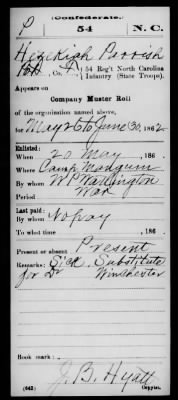 (Confederate.)
P 54 N. C.
Hizekiah Parrish
Pvt, Co. A, 54 Reg't North Carolina
Infantry (State Troops).
Appears on
Company Muster Roll
of the organization named above,
for May 26 to June 30, 1862
Enlisted:
When 20 May, 186 .
Where Camp Mangum
By whom W P Watlington
Period War
Last paid:
By whom No pay
To what time , 186 .
Present or absent Present
Remarks: Sick. Substitute
for D Winchester
Book mark:
J. B. Hyatt
(642) Copyist.